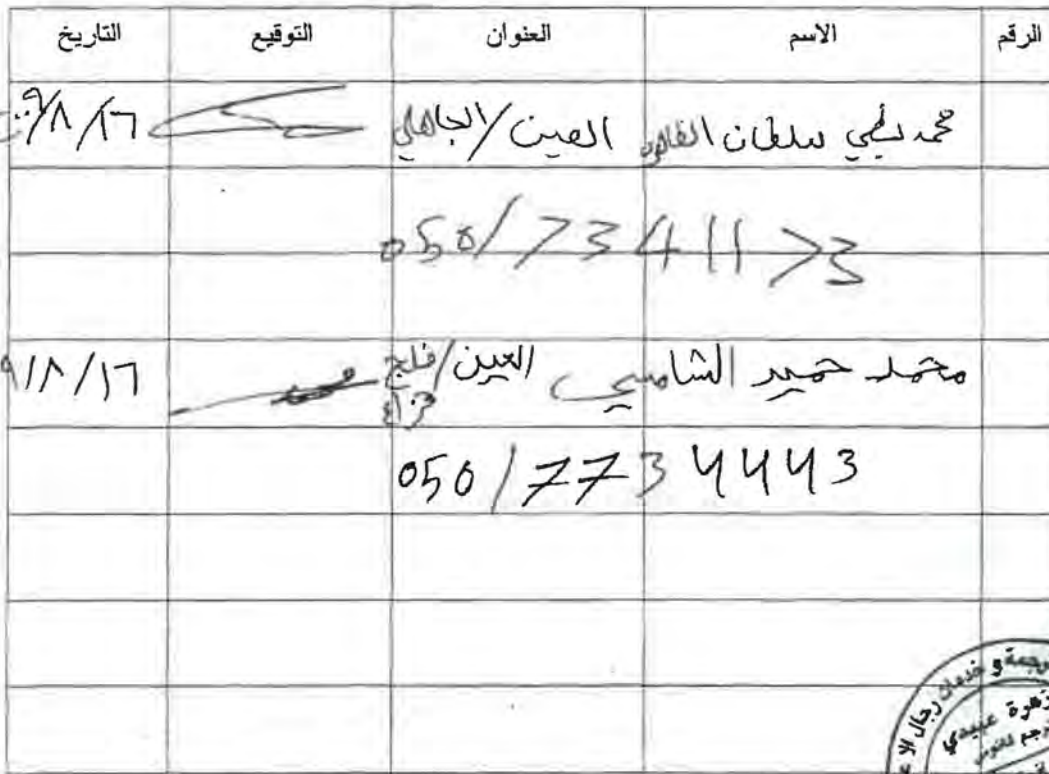 الرقم الاسم العنوان التوقيع التاريخ
محمد سلطان العين/الجاهلي ١٦/٨/٩
050/7341173
محمد حميد الشامسي العين/فلج هزاع ١٦/٨/٩
050/7734443
ترجمة و خدمات رجال الا
زهرة عبيدي